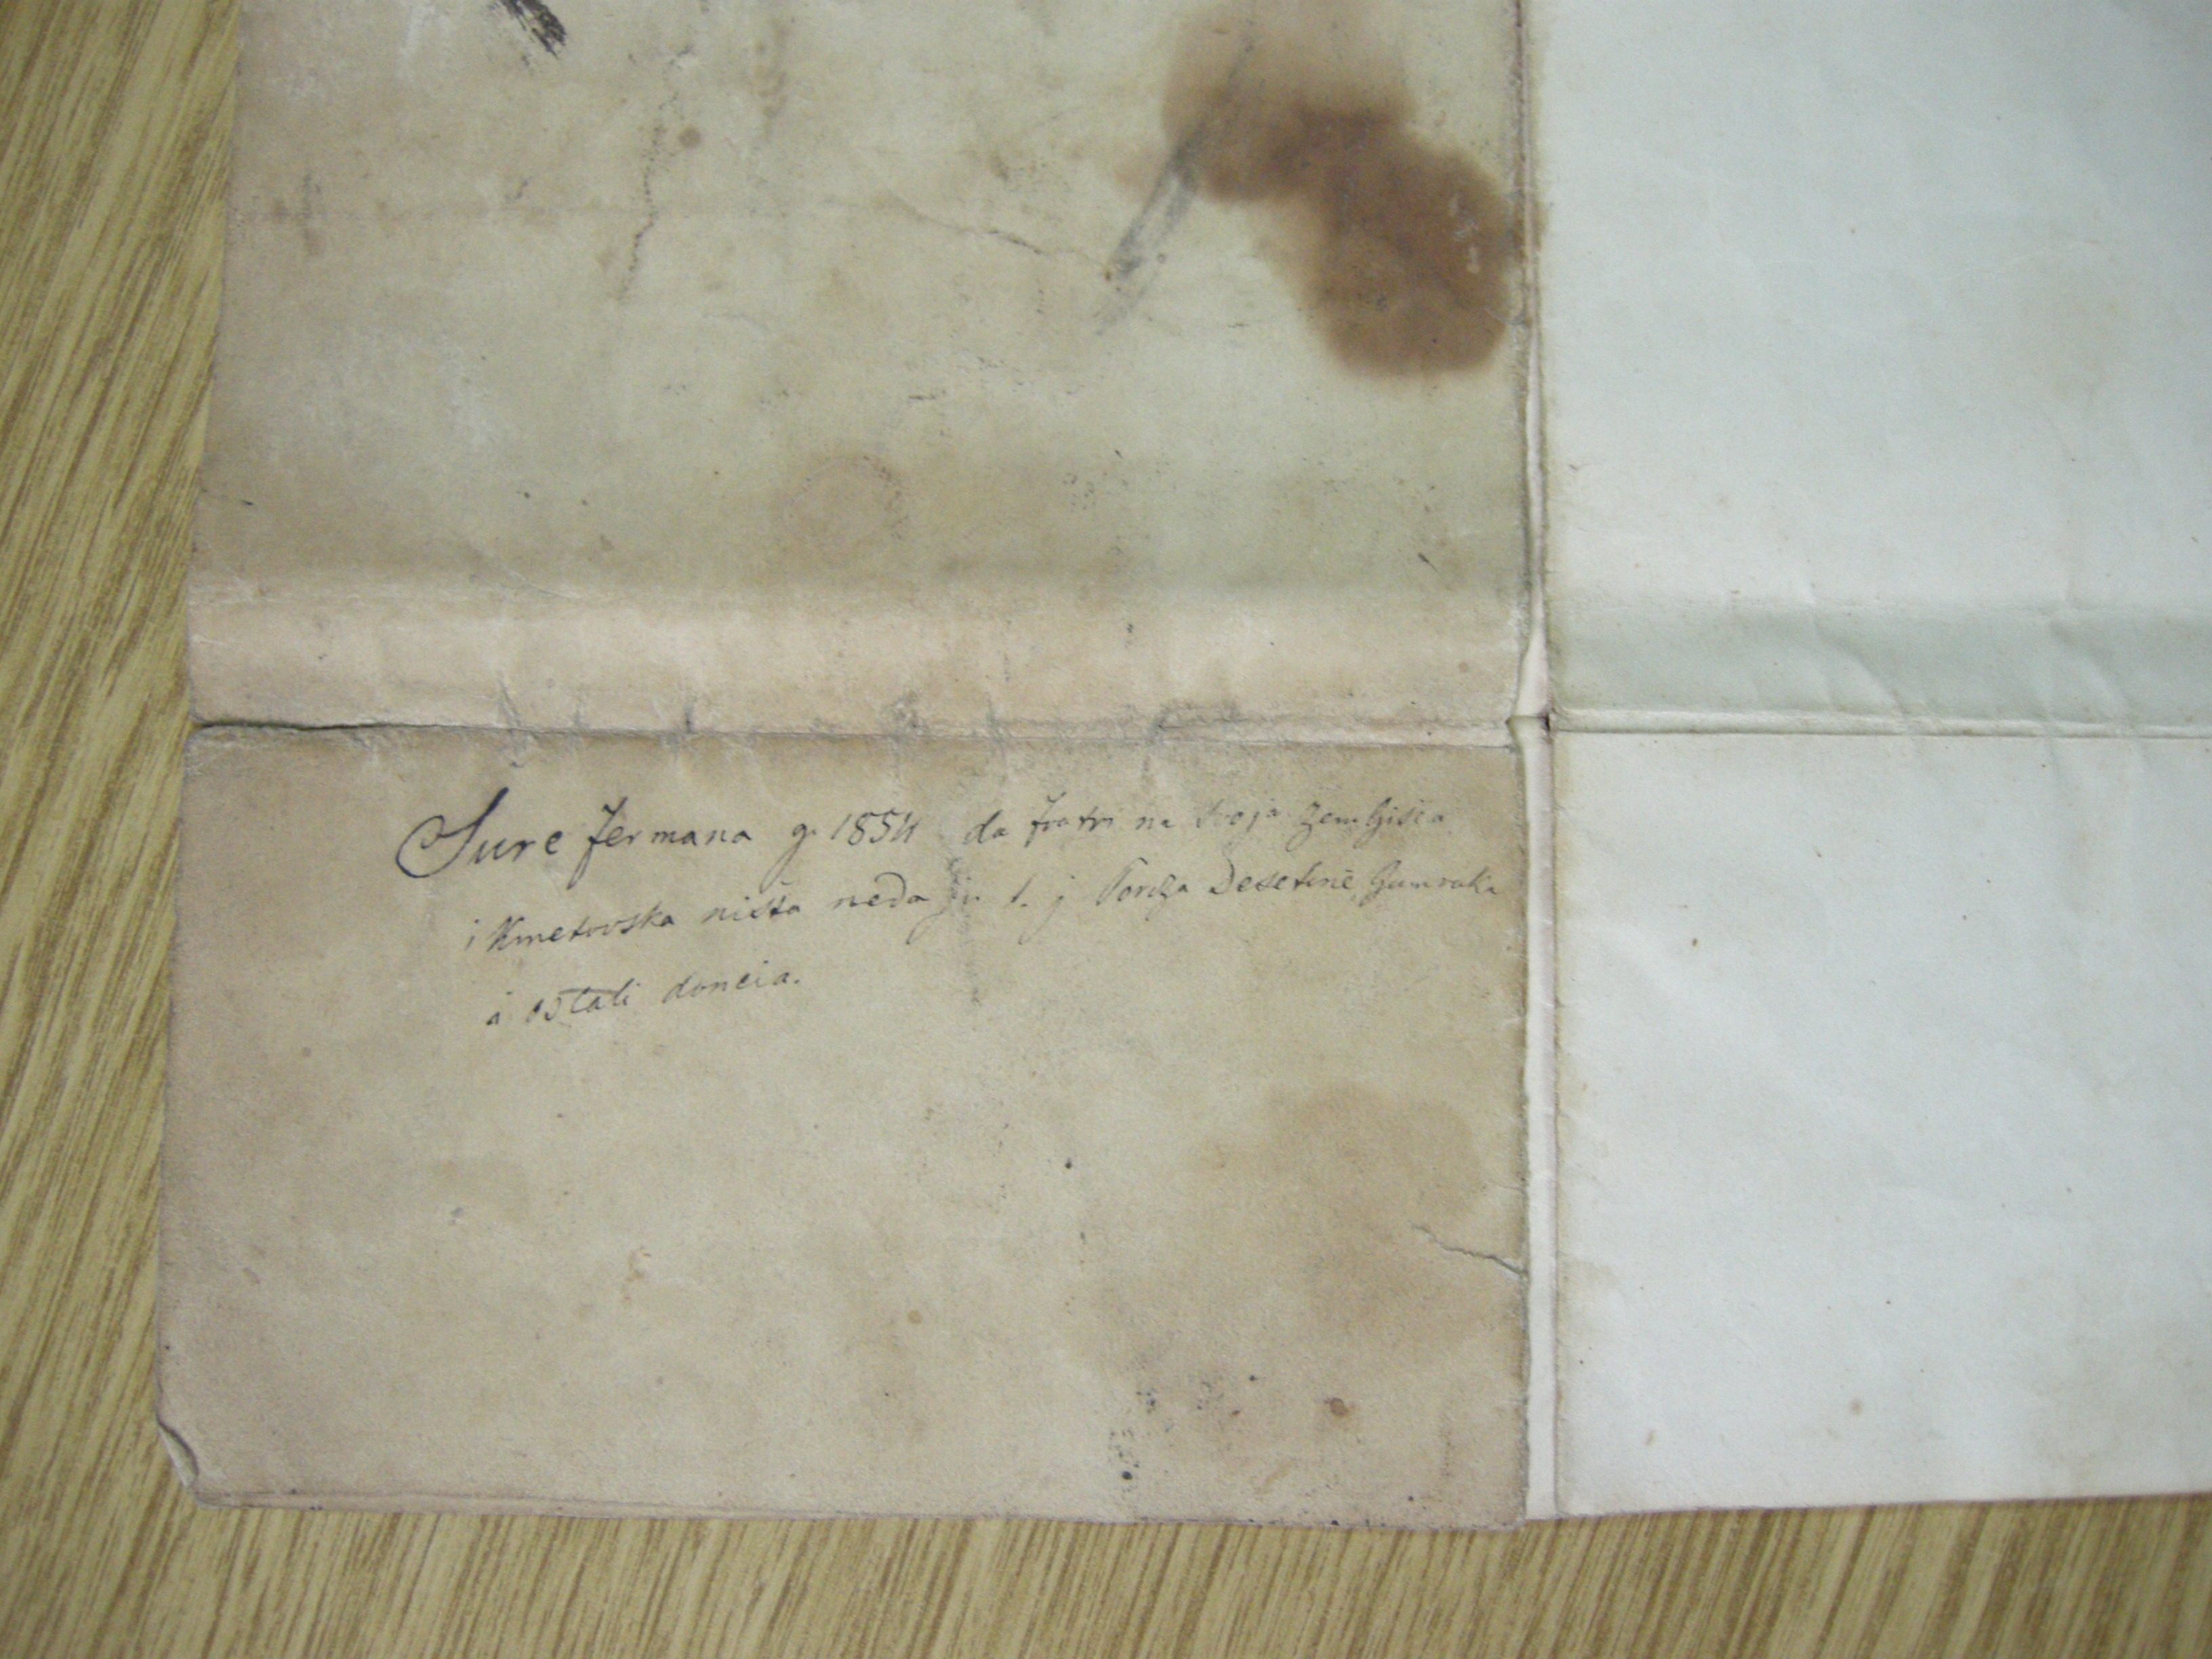 Sure fermana g. 1854 da fratri na svoja zemljišća
i Kmetovska ništa nedaju t. j Poreza Desetine Gumruka
i ostali doncia.